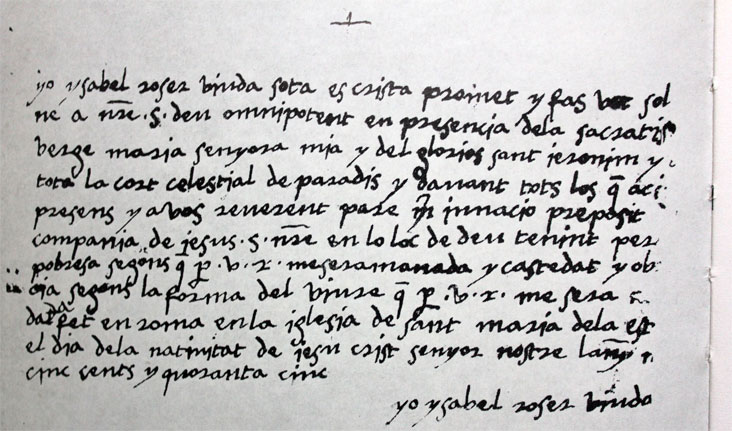 1
yo ysabel roser biuda sota escrista promet y fas vot sol
ne a nr̄e .s. deu omnipotent en presencia dela sacratis
verge maria senyora mia y del glorios sant jeronim y
tota la cort celestial de paradis y davant tots los q̄ aci
presens y a vos reverent pare innacio preposit
compania de jesus .s. nr̄e en lo loc de deu tenint per
pobresa segons q̄ p. v. r. me sera manada y castedat y ob
cia segons la forma del viure q̄ p. v. r. me sera
data fet en roma en la iglesia de sant maria dela est
el dia dela nativitat de jesu crist senyor nostre lany
cinc cents y quoranta cinc
yo ysabel roser biuda